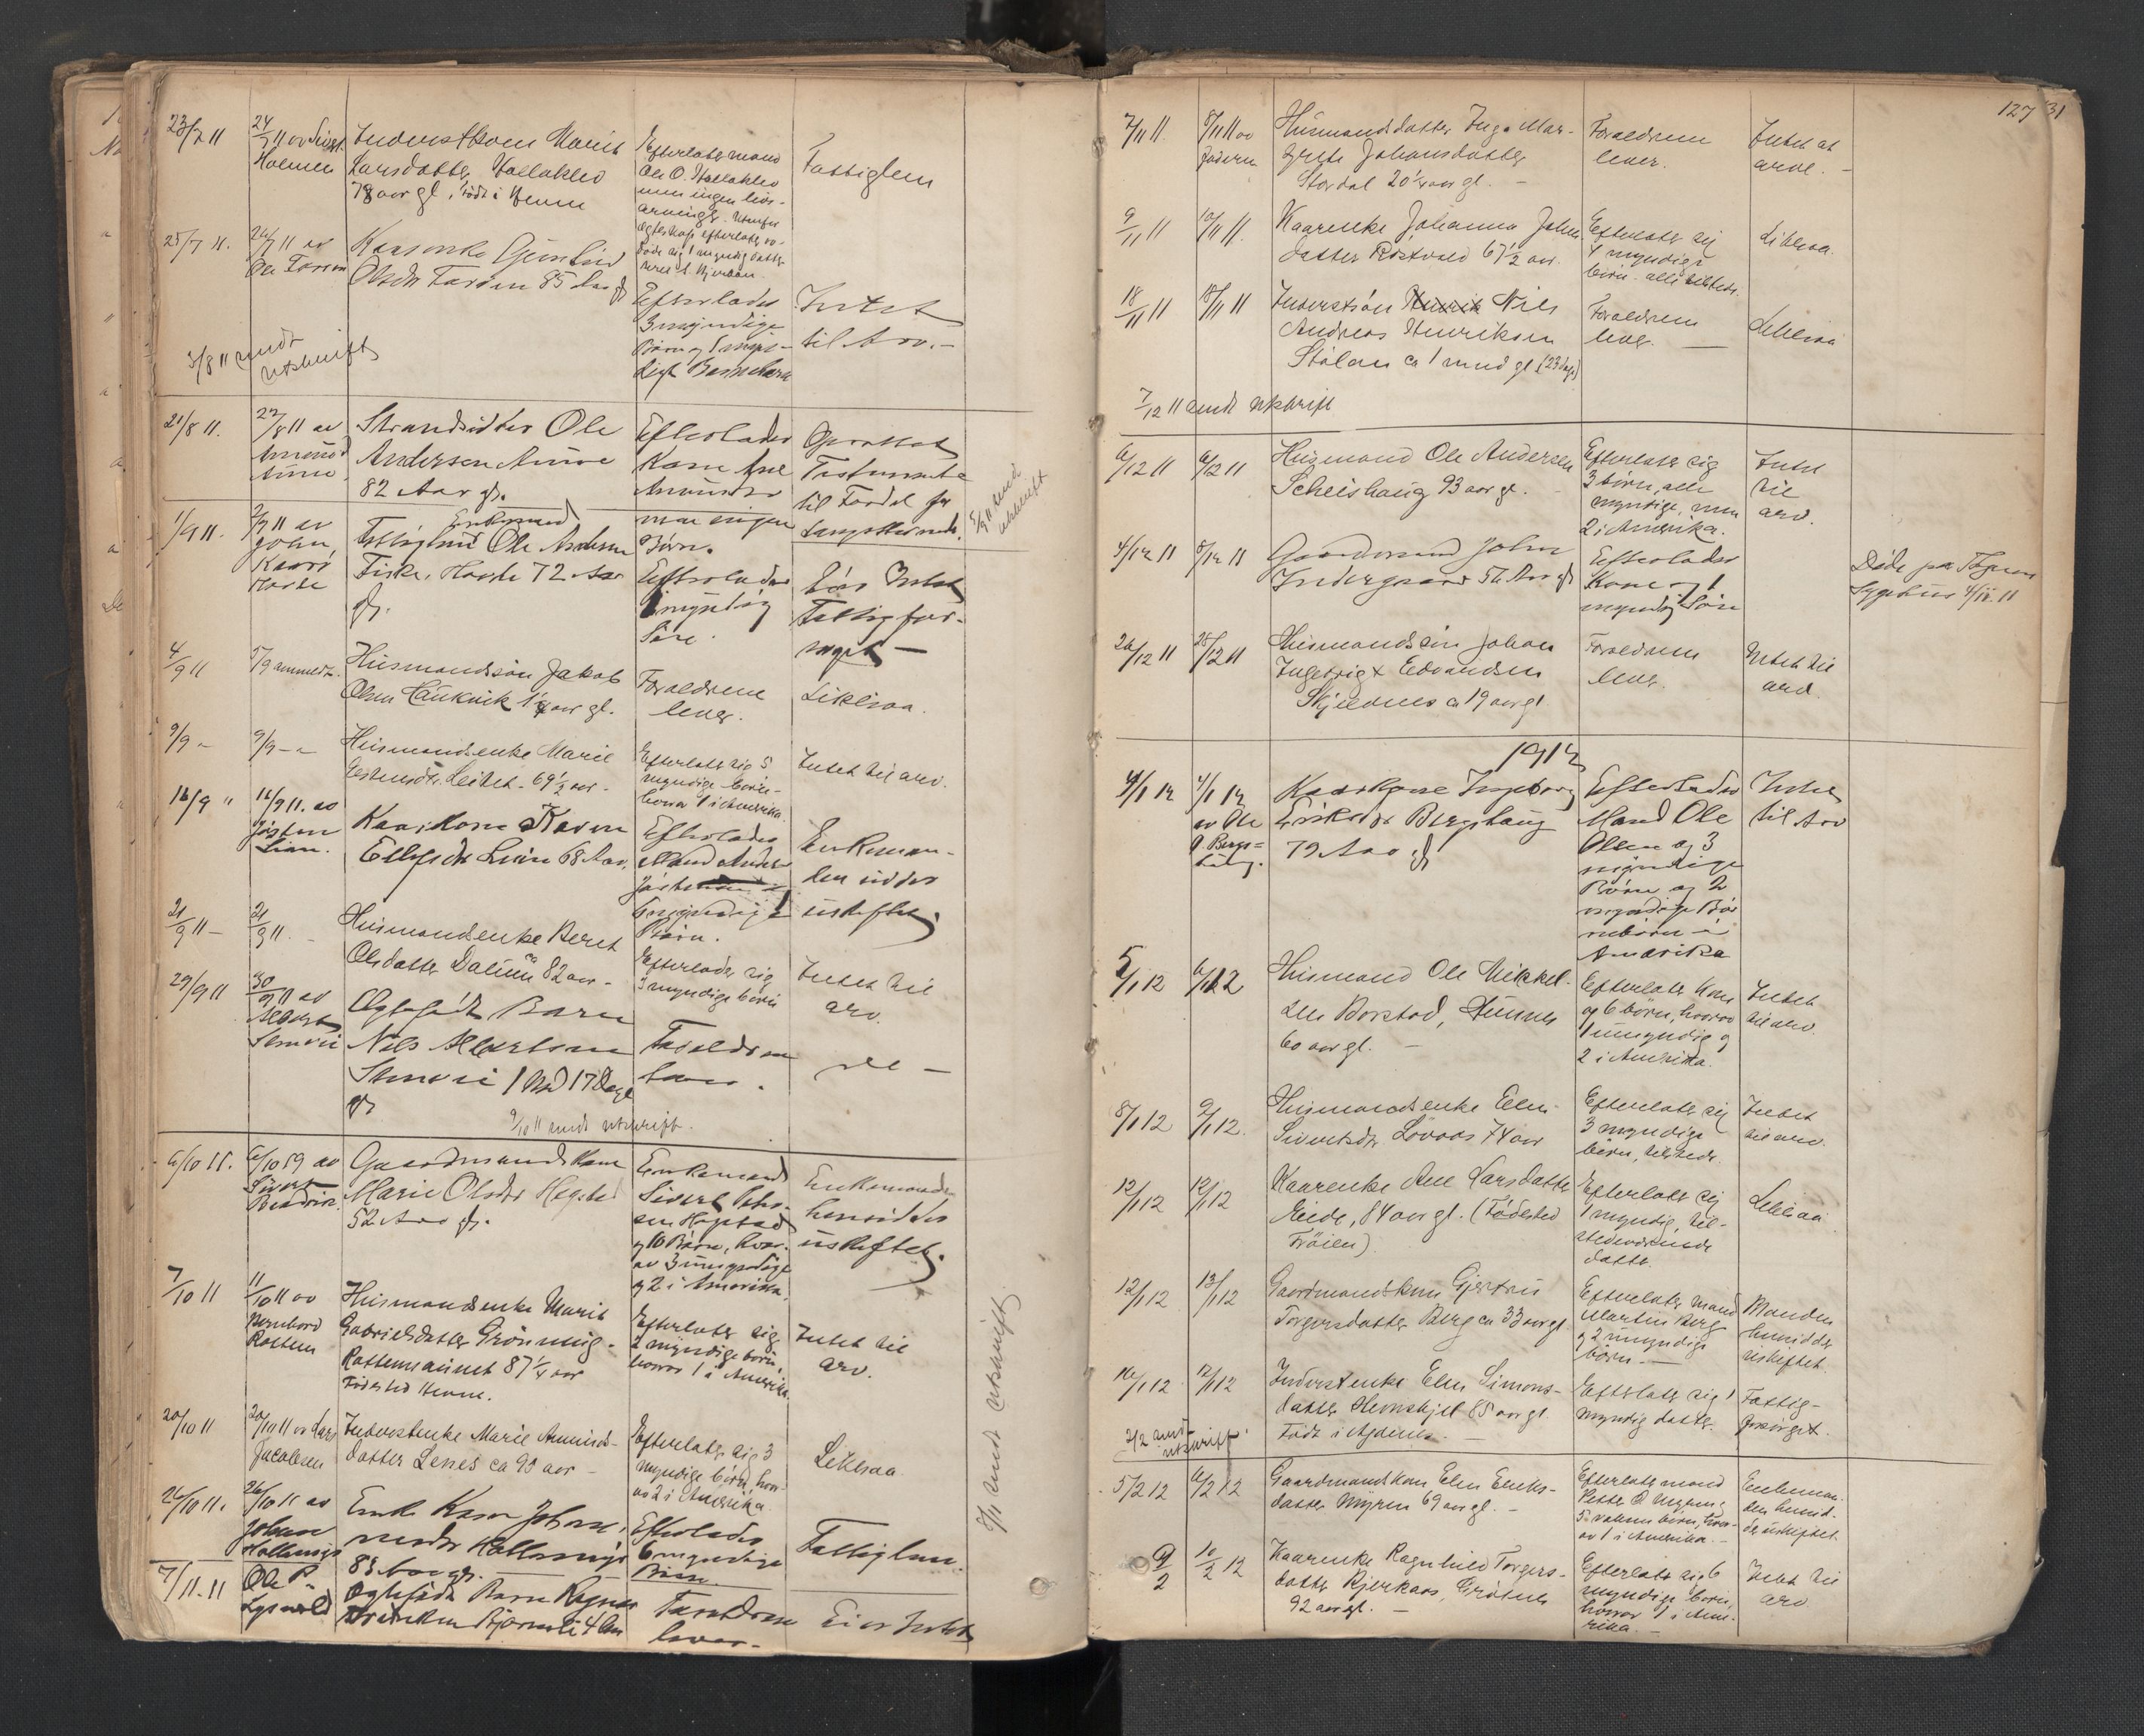 23/7 11
24/7 11 av Sivert
Holmen
Inderstkone Marit
Larsdatter Hallaklev
78 aar gl. født i Hevne
Efterlater mand
Ole O. Hallaklev
men ingen livs-
arvinger. Utenfor
egteskap efterlater
Fattiglem
25/7 11.
26/7 11 av
Ole Faren
Olsdr Faren 85 Aar gl
Efterlader
3 myndige
Børn og 1 umyn-
digt Barnebarn
Intet
til Arv. -
3/8 11 sendt
utskrift
21/8 11.
22/8 11 av
Strandsidder Ole
Andersen Aune
82 Aar gl.
Efterlader
Kone Ane
men ingen
Børn.
Oprettet
Testamente
til Fordel for
5/9 11 sendt
utskrift
1/9 11.
2/9 11 av
John
Enkemand
Ole Andersen
72 Aar
gl.
Efterlader
1 myndig
Søn.
Intet
Fattigfor-
sørget —
4/9 11
5/9 anmeldt.
Husmandssøn Jakob
Olsen Taukvik 1¼ aar gl.
Forældrene
lever.
Likesaa.
9/9 "
9/9 - "
Husmandsenke Marie
Leitet - 69½ aar.
Efterlater sig 5
myndige børn
hvorav 1 i Amerika.
Intet til arv.
16/9 "
16/9 11. av
Jøsten
Lien.
Kaarkone Karen
68 Aar.
Efterlader
Mand Anders
6 myndige
Børn.
Enkeman-
den sidder
uskiftet.
21/9 11 -
21/9 11. -
Husmandsenke Beret
Olsdatter Dalum 82 aar -
Efterlader sig
3 myndige børn
Intet til
arv.
29/9 11
30/9 11 av
Albert
Egtefødt Barn
Nils Albertsen
1 Md 17 Dage
gl
Forældrene
lever.
de —
9/10 11 sendt utskrift.
6/10 11.
6/10 19 av
Sivert
Gaardmandskone
Marie Olsdr Hegstad
52 Aar gl.
Enkemand
Sivert Peter-
sen Hegstad
og 10 Børn, hvor-
av 3 umyndige
og 2 i Amerika.
Enkemanden
hensidder
uskiftet.
7/10 11
11/10 11 av
Bernhard
Rottem
Husmandsenke Marit
Gabrielsdatter Grønning -
Rottemsaunet 87¼ aar
Fødested Hevne.
Efterlater sig
2 myndige børn,
hvorav 1 i Amerika.
Intet til
arv.
20/10 11
20/10 11 av Lars
Jacobsen
Inderstenke Marie Amunds-
datter Lenes ca 90 aar -
Efterlater sig 3
myndige børn, hvor-
av 2 i Amerika.
Likesaa
26/10 11.
26/10 11 av
Johan
Enke Karen Johan-
83 Aar gl.
Efterlader
6 myndige
Børn.
Fattiglem.
7/11 sendt utskrift
7/11. 11
Ole P.
Egtefødt Barn Ragnar
Forældrene
lever.
Eier Intet
127 31
7/11 11.
8/11 11 av
faderen
Husmandsdatter Inga Mar-
grete Johansdatter
Stordal 20¼ aar gl. -
Forældrene
lever.
Intet at
arve. -
9/11 11
10/11 11.
Kaarenke Johanna Johns-
datter Røstvold 67½ aar.
Efterlater sig
4 myndige
børn. alle tilstede.
Likesaa.
18/11 11
18/11 11
Inderstsøn Henrik Nils
Andreas Henriksen
Stølan ca 1 mnd gl. (23 dage)
Forældrene
lever. —
Likesaa
7/12 11 sendt utskrift
6/12 11
6/12 11
Husmand Ole Andersen
Scheishaug 93 aar gl. -
Efterlater sig
3 børn, alle
myndige, men
2 i Amerika.
Intet
til
arv.
4/12 11
5/12 11
Gaardmand John
Indergaard 56 Aar gl
Efterlader
Kone og 1
myndig Søn
Døde paa
Sygehus 4/12. 11
26/12 11
28/12 11
Husmandssøn Johan
Ingebrigt Edvardsen
Skjeldnes ca 19 aar gl.
Forældrene
lever.
Intet til
arv.
1912
4/1 12
4/1 12
av Ole
O. Bergs-
haug.
Kaarkone Ingeborg
Eriksdr Bergshaug
79 Aar gl
Efterlader
Mand Ole
Olsen og 3
myndige
Børn og 2
umyndige Bør
nebørn i
Amerika
Intet
til Arv
5/1 12
6/1 12
Husmand Ole Mikkel-
sen Borstad,
60 aar gl. -
Efterlater kone
og 6 børn, hvorav
1 umyndig og
2 i Amerika.
Intet
til arv.
8/1 12
9/1 12.
Husmandsenke Elen
Sivertsdr Løvaas 74 aar
Efterlater sig
3 myndige
børn, tilstede.
Intet
til arv.
12/1 12
12/1 12
Kaarenke Ane Larsdatter
Eide, 84 aar gl. (Fødested
Frøien)
Efterlater sig
1 myndig, til-
stedeværende
datter.
Likesaa
12/1 12
13/1 12
Gaardmandskone Gjertru
Torgersdatter Berg ca 33 aar gl
Efterlater mand
Martin Berg
og 2 umyndige
børn. —
Manden
hensidder
uskiftet.
16/1 12
17/1 12
Inderstenke Elen Simons-
datter Hemskjel 85 aar gl.
Født i Agdenes. -
Efterlater sig 1
myndig datter.
Fattig-
forsørget.
2/2 sendt
utskrift.
5/2 12
6/2 12
Gaardmandskone Elen Eriks-
datter Myren 69 aar gl. -
Efterlater mand
Petter O Myren og
5 voksne børn, hvor-
av 1 i Amerika. -
Enkeman-
den hensid-
der uskiftet.
9/2
10/2 12
Kaarenke Ragnhild Torgers-
datter Kjerkaas,
92 aar gl. —
Efterlater sig 6
myndige børn,
hvorav 1 i Ame-
rika. —
Intet til
arv.